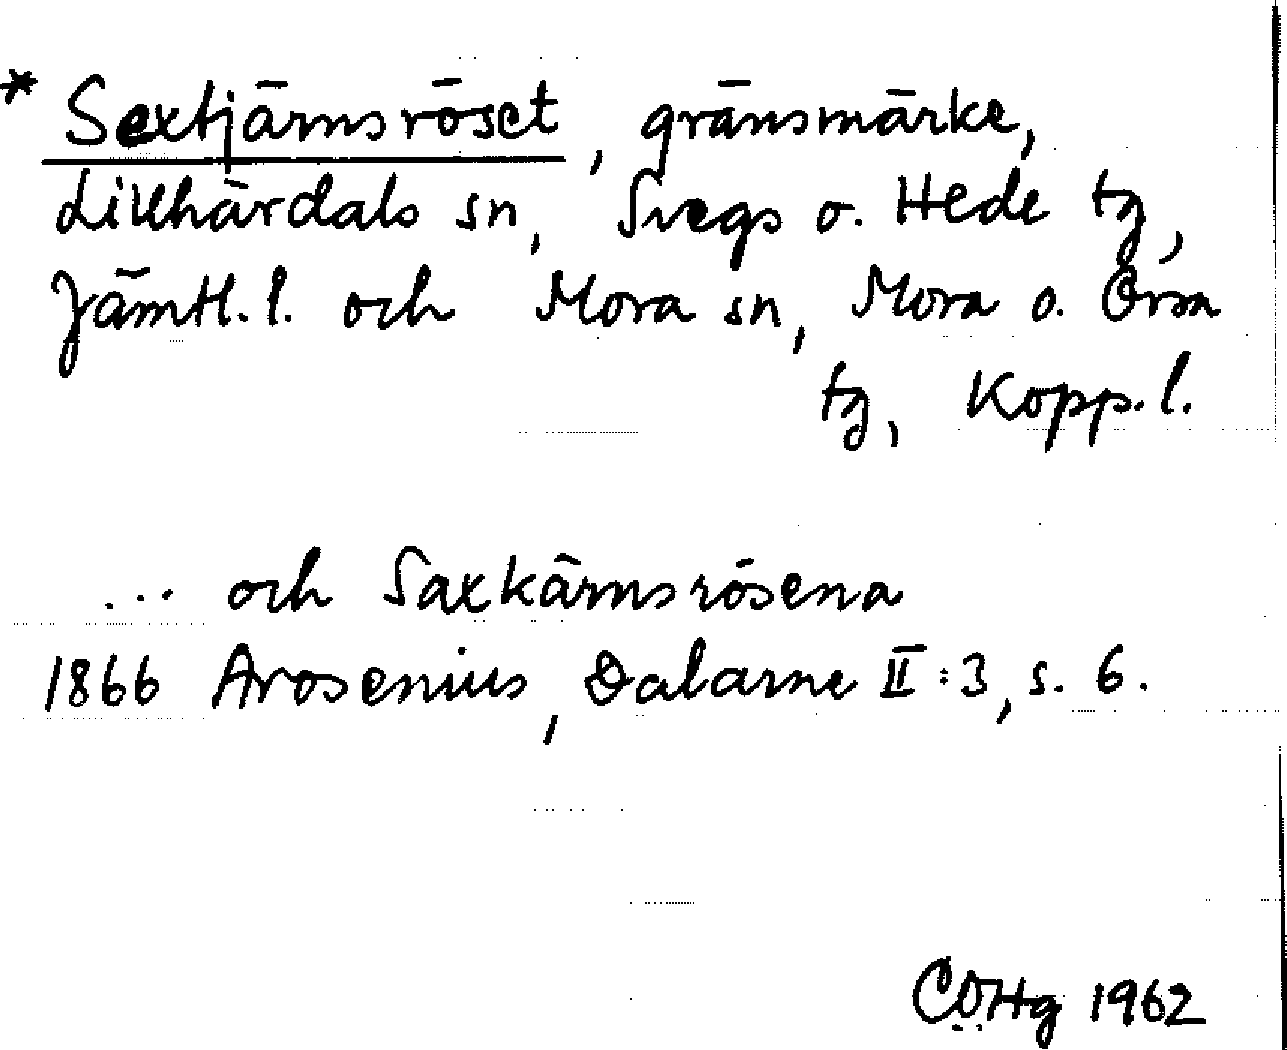 * Sextjärnsröset, gränsmärke,
Lillhärdals sn, Svegs o. Hede tg,
Jämtl. l. och Mora sn, Mora o. Orsa
tg, Kopp. l.
... och Saxkärnsrösena
1866 Arosenius, Dalarne II:3, s. 6.
CÖHg 1962